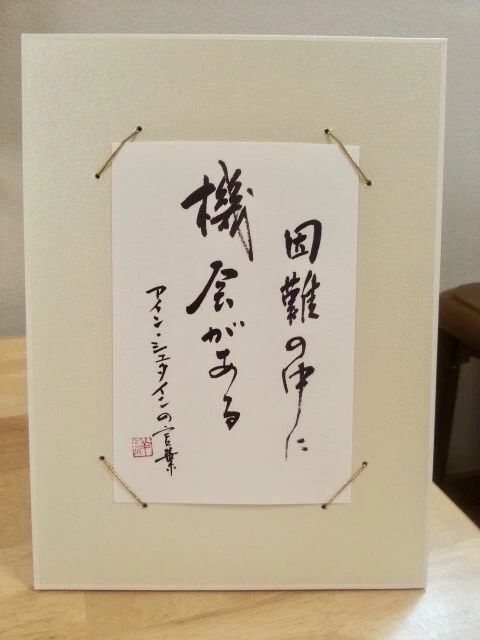 困難の中に
機会がある
アイン・シュタインの言葉